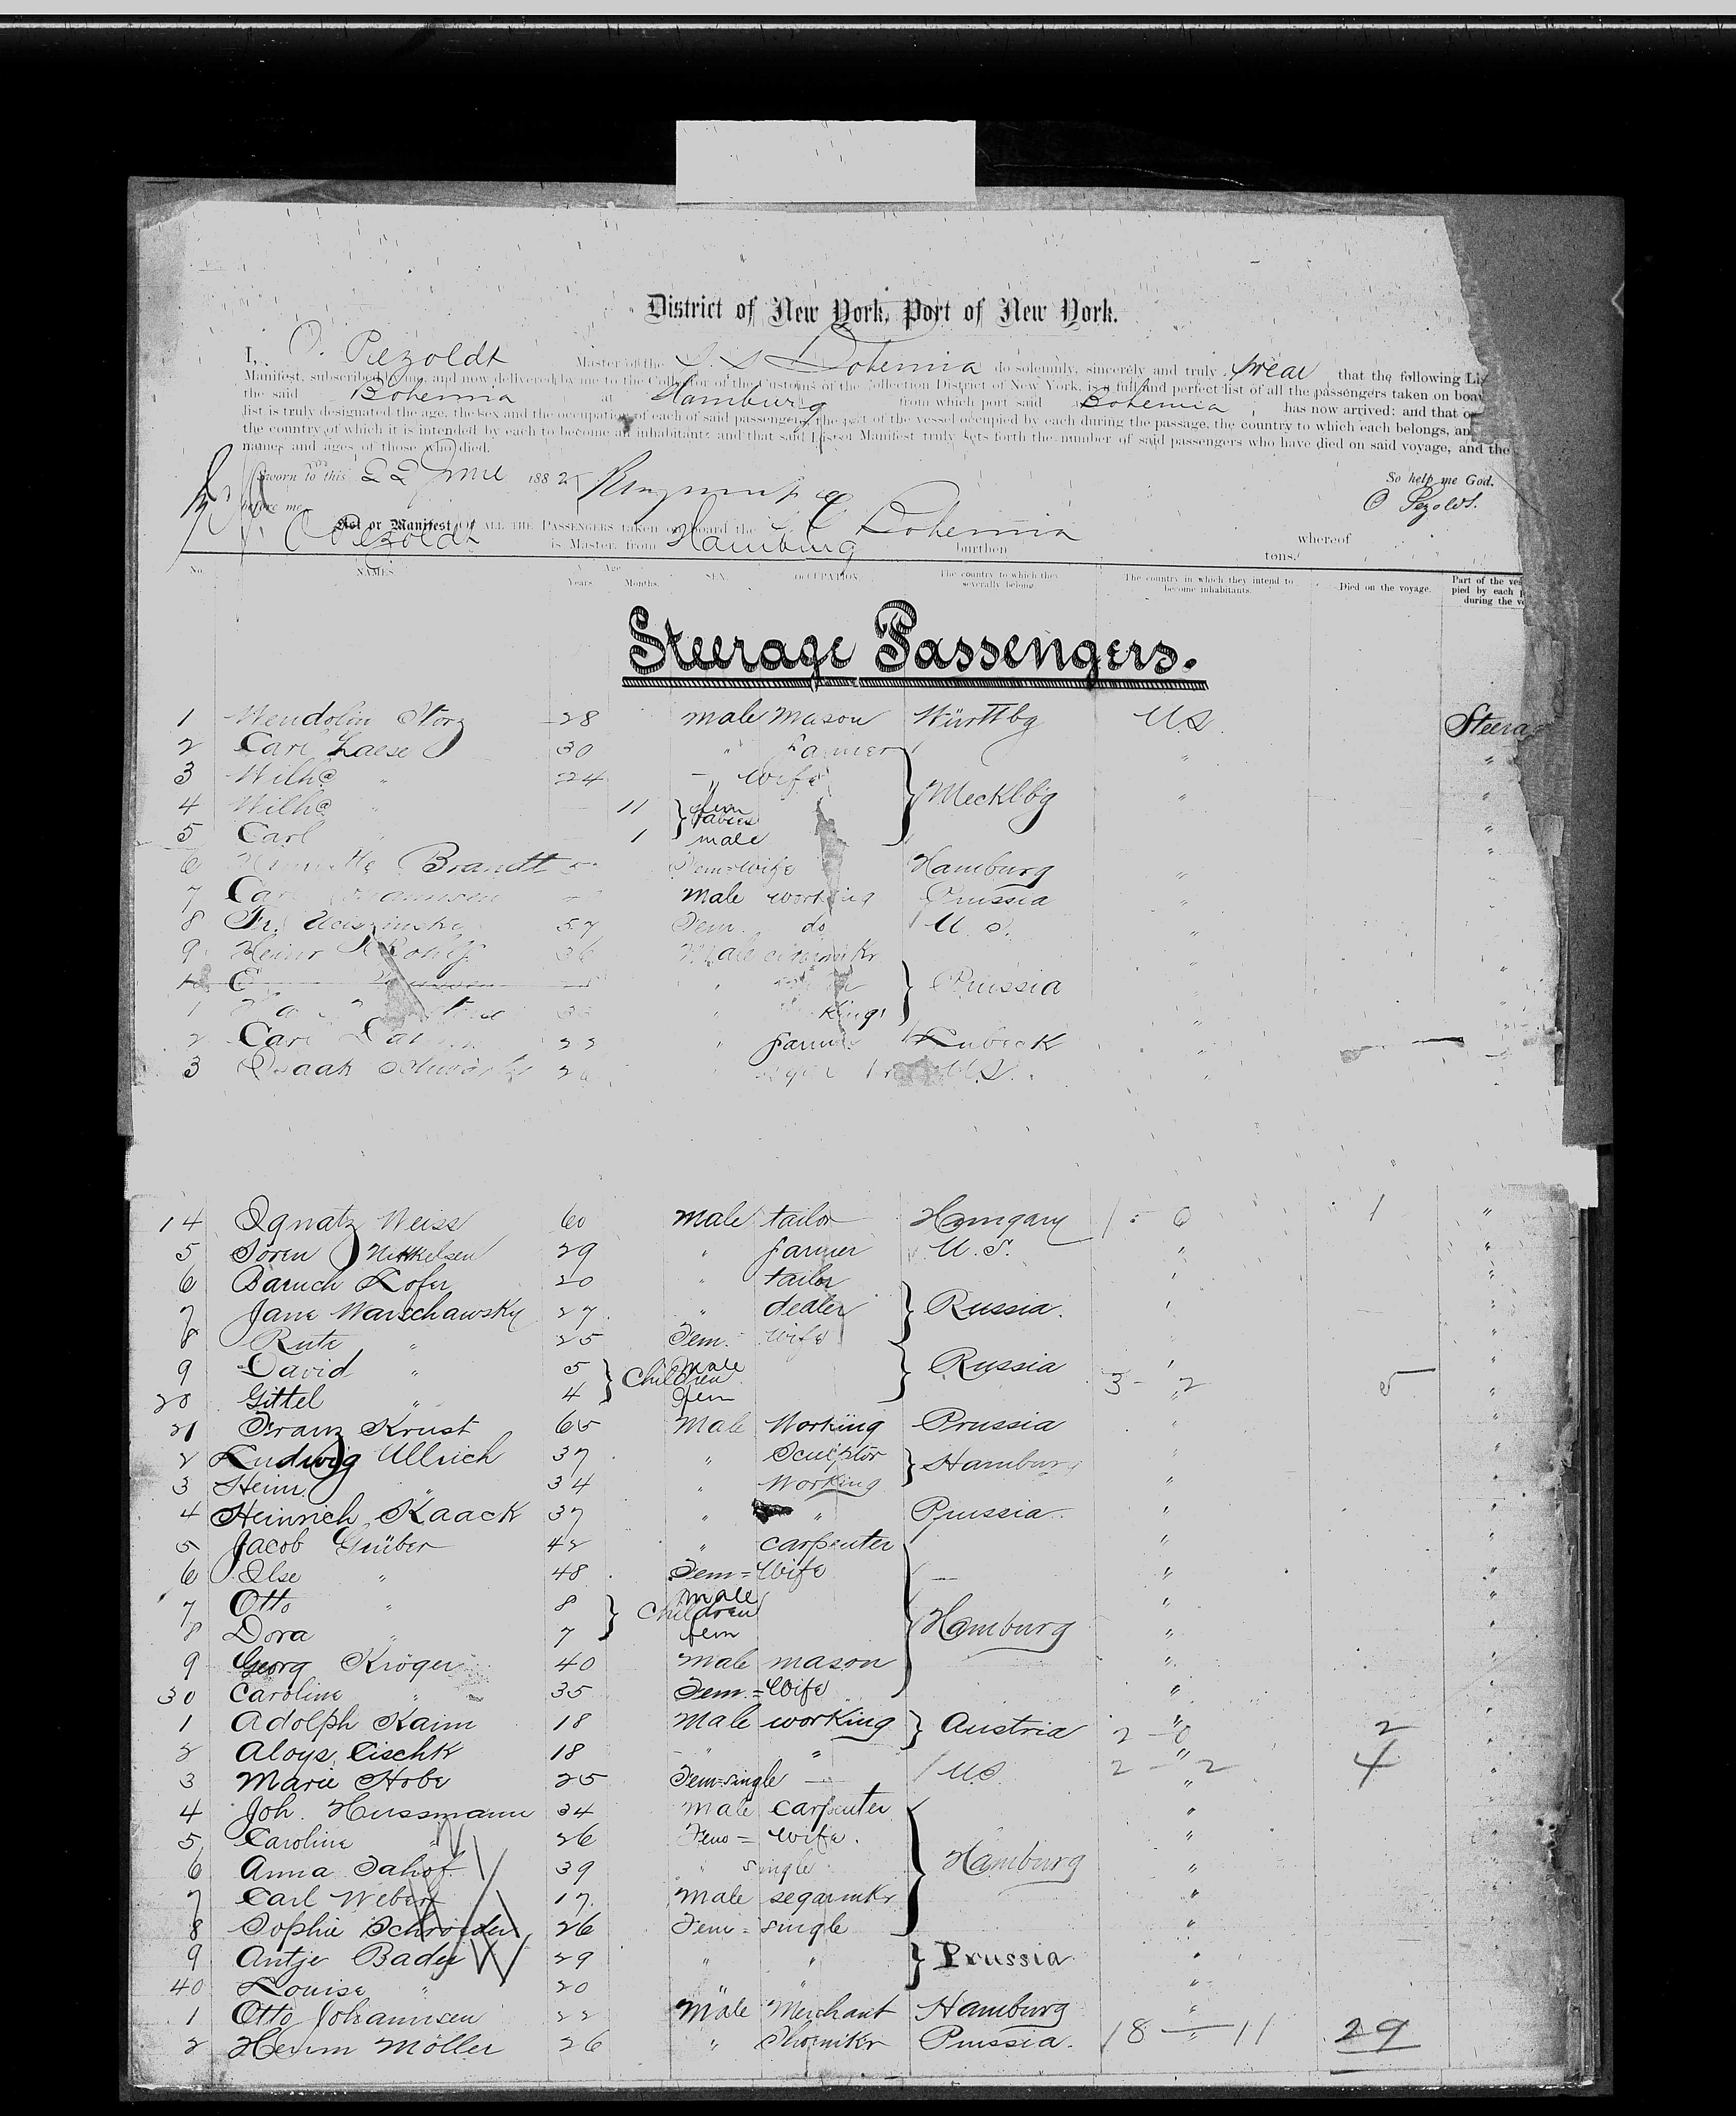 District of New York, Port of New York.
I, O. Pezoldt Master of the S. S. Bohemia do solemnly, sincerely and truly swear that the following Lis
Manifest, subscribed by me, and now delivered by me to the Collector of the Customs of the Collection District of New York, is a full and perfect list of all the passengers taken on boa
the said Bohemia at Hamburg from which port said Bohemia has now arrived: and that o
list is truly designated the age, the sex and the occupation of each of said passengers, the part of the vessel occupied by each during the passage, the country to which each belongs, an
the country of which it is intended by each to become an inhabitant: and that said List or Manifest truly sets forth the number of said passengers who have died on said voyage, and the
names and ages of those who died.
Sworn to this 22 June 1882 So help me God.
before me O Pezoldt.
List or Manifest OF ALL THE PASSENGERS taken on board the S. S. Bohemia whereof
O Pezoldt is Master, from Hamburg burthen tons.
No. NAMES. Age Years. Months. SEX. OCCUPATION. The country to which they severally belong. The country in which they intend to become inhabitants. Died on the voyage. Part of the ves pied by each during the v
Steerage Passengers.
1 Wendolin Storz 28 male Mason Württbg U.S. Steera
2 Carl Laese 30 " Farmer "
3 Wilhe " 24 " Wife "
4 Wilhe " 11 fem babies Mecklbg "
5 Carl " 1 male "
6 Brandt Fem = Wife Hamburg "
7 Carl Johannsen Male working Prussia "
8 Fr. 57 Fem. do U. S. "
9 Heinr 36 Male "
10 " Prussia "
1 "
2 Carl 22 " farmer Lubeck "
3 Isaak 26 " U.S. "
14 Ignatz Weiss 60 male tailor Hungary 1 : 0 1 "
5 Sören Mikkelsen 29 " farmer U. S. " "
6 Baruch Lofer 20 " tailor " "
7 Jane Warschawsky 27 " dealer Russia. " "
8 Rute " 25 Fem. = Wife " "
9 David " 5 Children male Russia " "
20 Gittel " 4 fem 3 - 2 5 "
21 Franz Krust 65 Male Working Prussia " "
2 Ludwig Ullrich 37 " Sculptor Hamburg " "
3 Heinr. " 34 " Working " "
4 Heinrich Kaack 37 " " Prussia " "
5 Jacob Grüber 42 " carpenter " "
6 Ilse " 48 Fem = Wife " "
7 Otto " 8 Children male " "
8 Dora " 7 fem Hamburg " "
9 Georg Kröger 40 male mason " "
30 Caroline " 35 Fem. = Wife " "
1 Adolph Kaim 18 Male working Austria 2 - 0 2 "
2 Aloys Cischk 18 " " " "
3 Marie Hobe 25 Fem = single U.S. 2 - 2 4 "
4 Joh. Hussmann 34 Male Carpenter " "
5 Caroline " 26 Fem = wife. " "
6 Anna Jahof 39 " single Hamburg " "
7 Carl Weber 17 Male segarmkr " "
8 Sophie Schröder 26 Fem = single " "
9 Antje Bade 29 " " Prussia " "
40 Louise " 20 " " " "
1 Otto Johannsen 22 Male Merchant Hamburg " "
2 Herm Möller 26 " Shoemkr Prussia. 18 - 11 29